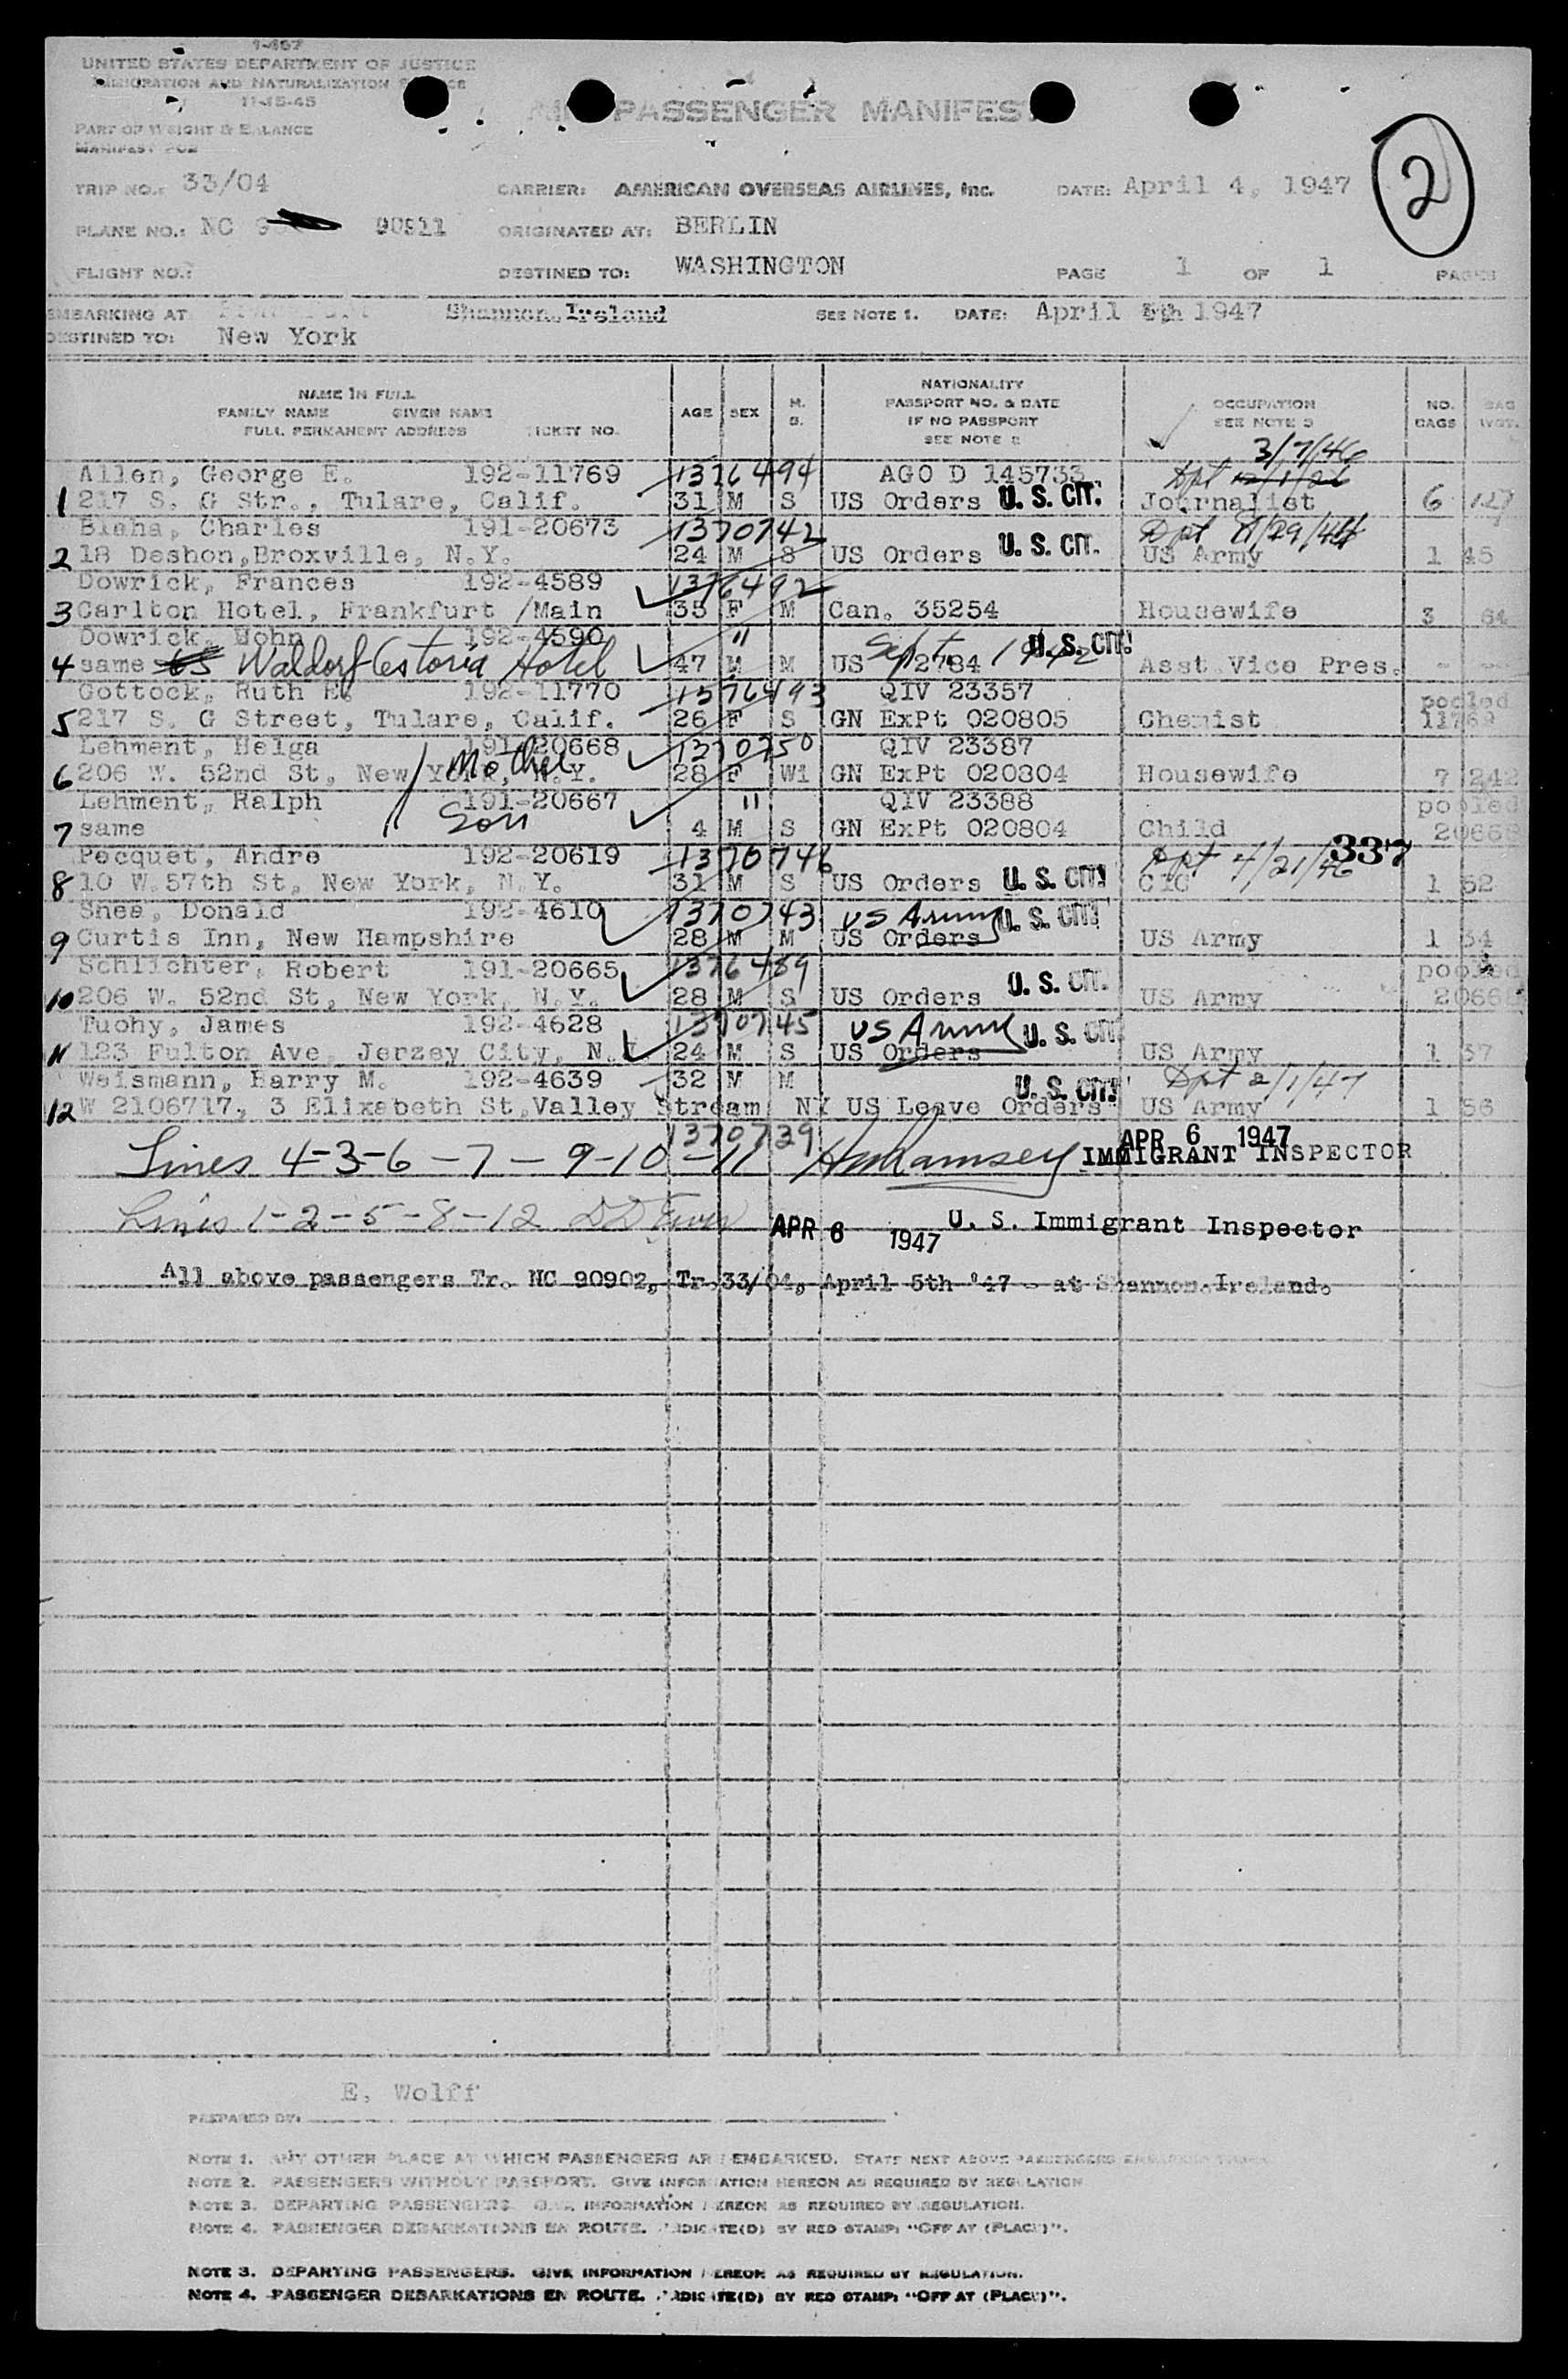 1-467
UNITED STATES DEPARTMENT OF JUSTICE
IMMIGRATION AND NATURALIZATION SERVICE
11-15-45
PART OF WEIGHT & BALANCE
MANIFEST FOR
AIR PASSENGER MANIFEST
2
TRIP NO.: 33/04 CARRIER: AMERICAN OVERSEAS AIRLINES, Inc. DATE: April 4, 1947
PLANE NO.: NC 90911 ORIGINATED AT: BERLIN
FLIGHT NO.: DESTINED TO: WASHINGTON PAGE 1 OF 1 PAGES
EMBARKING AT Shannon, Ireland SEE NOTE 1. DATE: April 5th 1947
DESTINED TO: New York
NAME IN FULL
FAMILY NAME GIVEN NAME
FULL PERMANENT ADDRESS TICKET NO.
AGE SEX M. S.
NATIONALITY
PASSPORT NO. & DATE
IF NO PASSPORT
SEE NOTE 2
OCCUPATION
SEE NOTE 3
NO. BAGS
BAG WGT.
3/7/46
Allen, George E. 192-11769 1376494 AGO D 145733 Dpt
1 217 S. G Str., Tulare, Calif. 31 M S US Orders U. S. CIT. Journalist 6 127
Blaha, Charles 191-20673 1370742 Dpt 11/29/44
2 18 Deshon, Broxville, N.Y. 24 M S US Orders U. S. CIT. US Army 1 45
Dowrick, Frances 192-4589 1376492
3 Carlton Hotel, Frankfurt /Main 35 F M Can. 35254 Housewife 3 64
Dowrick, John 192-4590 " Sept. 1942 U. S. CIT.
4 same Waldorf Astoria Hotel 47 M M US 2784 Asst Vice Pres. - --
Gottock, Ruth E. 192-11770 1376493 QIV 23357 pooled
5 217 S. G Street, Tulare, Calif. 26 F S GN ExPt 020805 Chemist 11769
Lehment, Helga 191-20668 1370750 QIV 23387
Mother
6 206 W. 52nd St, New York, N.Y. 28 F Wi GN ExPt 020804 Housewife 7 242
Lehment, Ralph 191-20667 " QIV 23388 pooled
7 same Son 4 M S GN ExPt 020804 Child 20668
Pecquet, Andre 192-20619 1370746 Dpt 4/21/46 337
8 10 W. 57th St, New York, N.Y. 31 M S US Orders U. S. CIT. CIC 1 52
Snee, Donald 192-4610 1370743 US Army U. S. CIT.
9 Curtis Inn, New Hampshire 28 M M US Orders US Army 1 34
Schlichter, Robert 191-20665 1376489 pooled
10 206 W. 52nd St, New York, N.Y. 28 M S US Orders U. S. CIT. US Army 20668
Tuohy, James 192-4628 1370745 US Army U. S. CIT.
11 123 Fulton Ave, Jerzey City, N.J. 24 M S US Orders US Army 1 37
Weismann, Harry M. 192-4639 32 M M U. S. CIT. Dpt 2/1/47
12 W 2106717, 3 Elixabeth St, Valley Stream NY US Leave Orders US Army 1 56
1370739 APR 6 1947
Lines 4-3-6-7-9-10-11 Ramsey IMMIGRANT INSPECTOR
Lines 1-2-5-8-12 APR 6 1947 U. S. Immigrant Inspector
All above passengers Tr. NC 90902, Tr.33/04, April 5th '47 - at Shannon. Ireland.
E. Wolff
PREPARED BY:
NOTE 1. ANY OTHER PLACE AT WHICH PASSENGERS ARE EMBARKED. STATE NEXT ABOVE PASSENGERS
NOTE 2. PASSENGERS WITHOUT PASSPORT. GIVE INFORMATION HEREON AS REQUIRED BY REGULATION
NOTE 3. DEPARTING PASSENGERS. GIVE INFORMATION HEREON AS REQUIRED BY REGULATION.
NOTE 4. PASSENGER DEBARKATIONS EN ROUTE. INDICATE(D) BY RED STAMP: "OFF AT (PLACE)".
NOTE 3. DEPARTING PASSENGERS. GIVE INFORMATION HEREON AS REQUIRED BY REGULATION.
NOTE 4. PASSENGER DEBARKATIONS EN ROUTE. INDICATE(D) BY RED STAMP: "OFF AT (PLACE)".